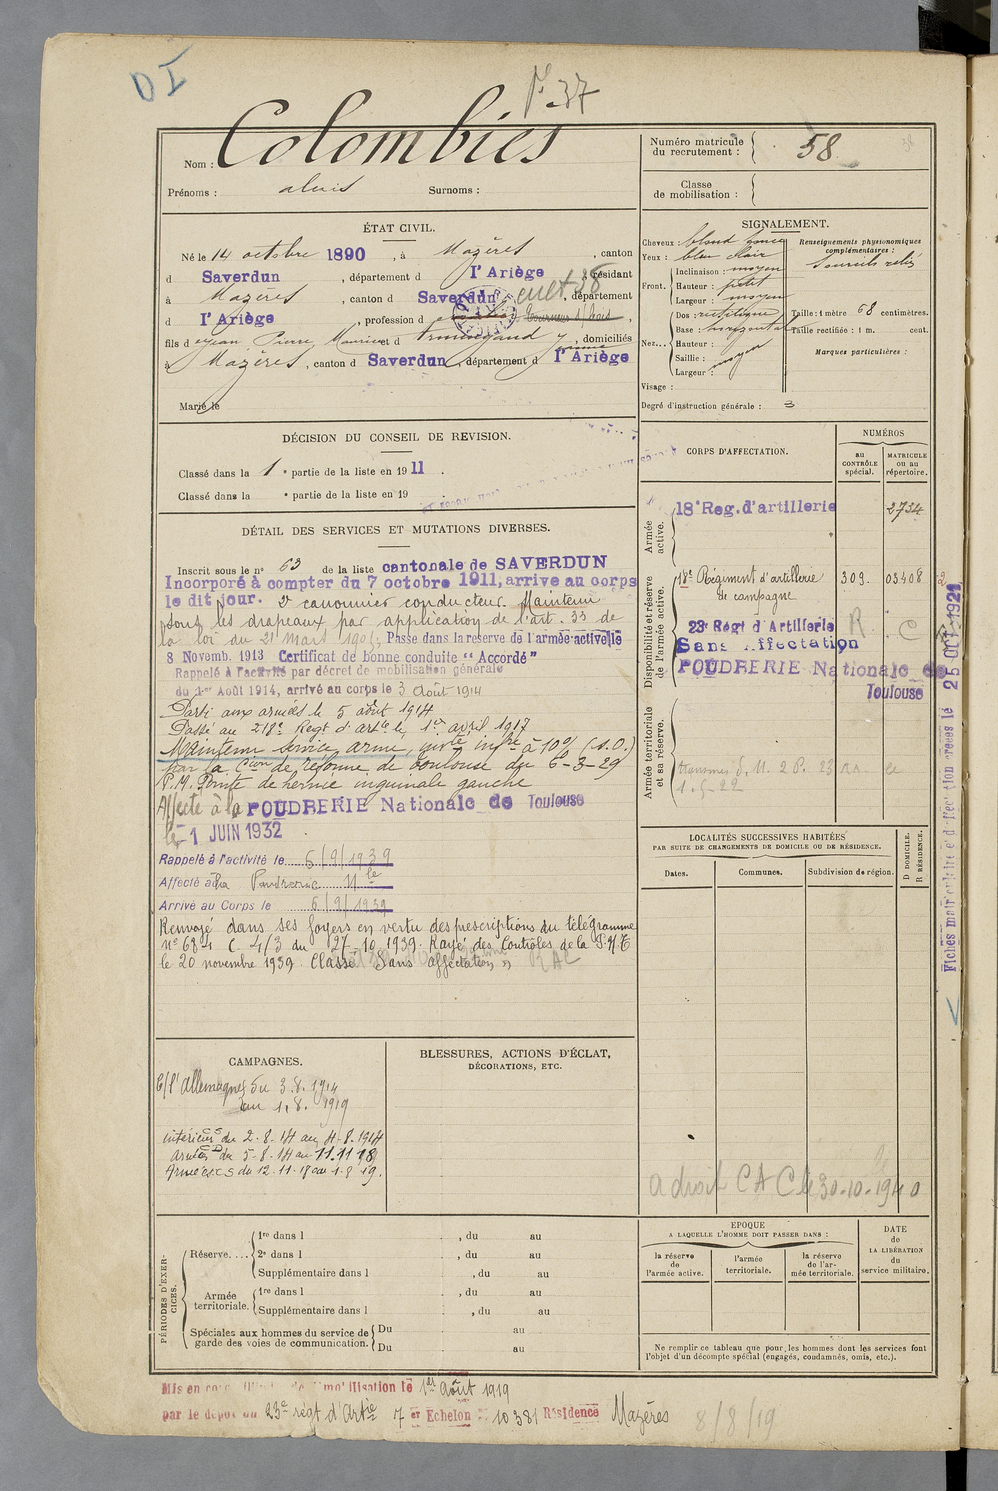 D I
37
Nom : Colombiès
Prénoms : alexis Surnoms :
Numéro matricule du recrutement : 58
Classe de mobilisation :
ÉTAT CIVIL.
Né le 14 octobre 1890, à Mazères, canton
d Saverdun, département d l'Ariège, résidant
à Mazères, canton d Saverdun, département
d l'Ariège, profession d
fils d jean Pierre Maurice et d Ermengaud, domiciliés
à Mazères, canton d Saverdun, département d l'Ariège
Marié le
SIGNALEMENT.
Cheveux : blond foncé
Yeux : bleu clair
Front. Inclinaison : moyen
Hauteur : petit
Largeur : moyen
Nez... Dos : rectiligne
Base : horizontal
Hauteur :
Saillie : moyen
Largeur :
Visage :
Degré d'instruction générale : 3
Renseignements physionomiques complémentaires :
Sourcils reliés
Taille : 1 mètre 68 centimètres.
Taille rectifiée : 1 m. cent.
Marques particulières :
DÉCISION DU CONSEIL DE REVISION.
Classé dans la 1e partie de la liste en 1911.
Classé dans la e partie de la liste en 19
CORPS D'AFFECTATION.
NUMÉROS
au CONTRÔLE spécial.
MATRICULE ou au répertoire.
Armée active.
18e Reg. d'artillerie 2734
Disponibilité et réserve de l'armée active.
18e Régiment d'artillerie de campagne 309. 03408
23e Régt d'Artillerie R C
Sans Affectation
POUDRERIE Nationale de Toulouse
Armée territoriale et sa réserve.
DÉTAIL DES SERVICES ET MUTATIONS DIVERSES.
Inscrit sous le no 63 de la liste cantonale de SAVERDUN
Incorporé à compter du 7 octobre 1911, arrive au corps
le dit jour. 2e canonnier conducteur. Maintenu
sous les drapeaux par application de l'art. 33 de
la loi du 21 mars 1905; Passe dans la reserve de l'armée active le
8 Novemb. 1913 Certificat de bonne conduite "Accordé"
Rappelé à l'activité par décret de mobilisation générale
du 1er Août 1914, arrivé au corps le 3 Août 1914
Parti aux armées le 5 août 1914
Passé au 218e Regt d'artie le 1er avril 1917
Maintenu service armé, invté infre à 10% (S.O.)
par la Ceion de réforme de Toulouse du 6-3-29
P.M. Pointe de hernie inguinale gauche
Affecté à la POUDRERIE Nationale de Toulouse
le 1 JUIN 1932
Rappelé à l'activité le 6/9/1939
Affecté à la Poudrerie Nle
Arrivé au Corps le 6/9/1939
Renvoyé dans ses foyers en vertu des prescriptions du télégramme
no 6341 C. 4/3 du 27-10.1939. Rayé des Contrôles de la P.N.T
le 20 novembre 1939. Classé "Sans affectation"
LOCALITÉS SUCCESSIVES HABITÉES
PAR SUITE DE CHANGEMENTS DE DOMICILE OU DE RÉSIDENCE.
Dates. Communes. Subdivision de région. D DOMICILE. R RÉSIDENCE.
Fiches matriculaire et d'affectation créées le 25 OCT 1921
CAMPAGNES.
C/ l'Allemagne, du 3.8.1914
au 1.8.1919
intérieur CS du 2-8-14 au 4-8-1914
armées CD du 5-8-14 au 11.11.18
Armées CS du 12.11.18 au 1.8.19.
BLESSURES, ACTIONS D'ÉCLAT,
DÉCORATIONS, ETC.
a droit CAC le 30-10-1940
PÉRIODES D'EXERCICES.
Réserve.... 1re dans l , du au
2e dans l , du au
Supplémentaire dans l , du au
Armée territoriale. 1re dans l , du au
Supplémentaire dans l , du au
Spéciales aux hommes du service de garde des voies de communication. Du au
Du au
EPOQUE
A LAQUELLE L'HOMME DOIT PASSER DANS :
la réserve de l'armée active.
l'armée territoriale.
la réserve de l'armée territoriale.
DATE de LA LIBÉRATION du service militaire.
Ne remplir ce tableau que pour les hommes dont les services font
l'objet d'un décompte spécial (engagés, condamnés, omis, etc.).
Mis en congé illimité de démobilisation le 1er août 1919
par le dépôt du 23e régt d'Artie 7er Echelon no 10381 Résidence Mazères 8/8/19